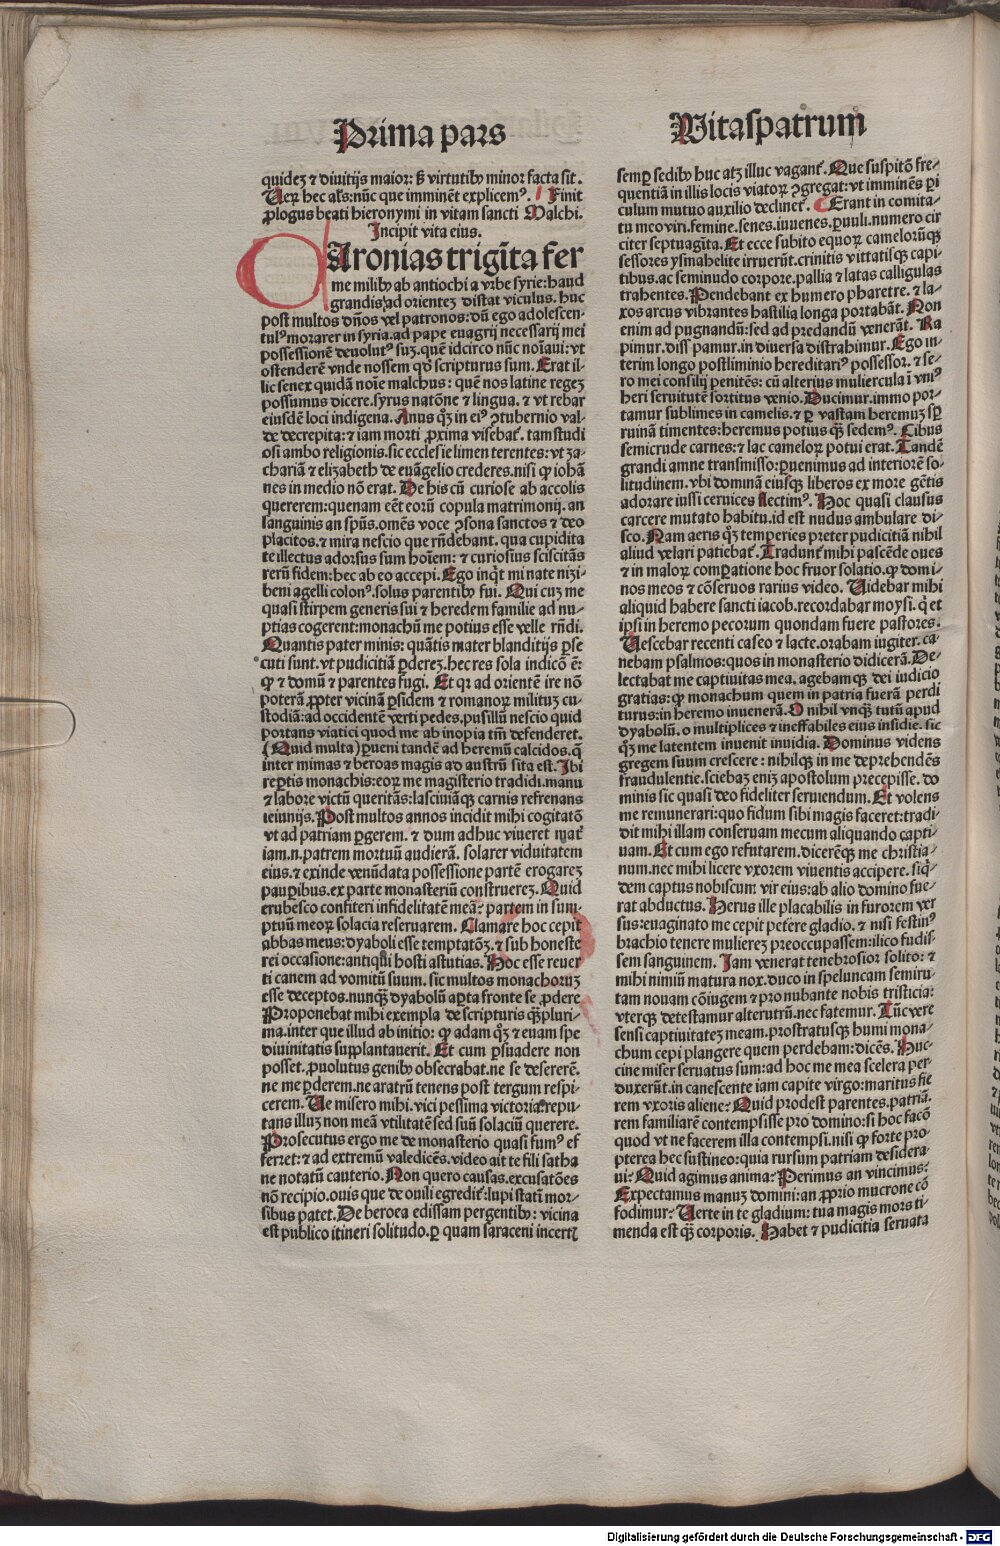 Prima pars
Vitaspatrum
quidez ⁊ diuitijs maior: s̄ virtutibꝰ minor facta sit.
Uerꝫ hec al̄s: nūc que imminēt explicemꝰ. Finit
ꝓlogus beati hieronymi in vitam sancti Malchi.
Incipit vita eius.
Aronias trigīta fer
me milibꝰ ab antiochia vrbe syrie: haud
grandis: ad orientez distat viculus. huc
post multos dn̄os vel patronos: dū ego adolescen-
tulꝰ morarer in syria. ad pape euagrij necessarij mei
possessionē deuolutꝰ suꝫ. quē idcirco nūc noīaui: vt
ostenderē vnde nossem qd̄ scripturus sum. Erat il-
lic senex quidā noīe malchus: quē nos latine regez
possumus dicere. syrus natōne ⁊ lingua. ⁊ vt rebar
eiusdē loci indigena. Anus qꝫ in eiꝰ ꝯtubernio val-
de decrepita: ⁊ iam morti ꝓxima visebat᷑. tam studi
osi ambo religionis. sic ecclesie limen terentes: vt za-
chariā ⁊ elizabeth de euāgelio crederes. nisi ꝙ iohā
nes in medio nō erat. De his cū curiose ab accolis
quererem: quenam eēt eorū copula matrimonij. an
sanguinis an spūs. omēs voce ꝯsona sanctos ⁊ deo
placitos. ⁊ mira nescio que rn̄debant. qua cupidita
te illectus adorsus sum hoīem: ⁊ curiosius sciscitās
rerū fidem: hec ab eo accepi. Ego inq̄t mi nate nizi-
beni agelli colonꝰ. solus parentibꝰ fui. Qui cuꝫ me
quasi stirpem generis sui ⁊ heredem familie ad nu-
ptias cogerent: monachū me potius esse velle rn̄di.
Quantis pater minis: quātis mater blanditijs ꝑse
cuti sunt. vt pudicitiā ꝑderez. hec res sola indicō ē:
ꝙ ⁊ domū ⁊ parentes fugi. Et qꝛ ad orientē ire nō
poterā ꝓpter vicinā ꝑsidem ⁊ romanorꝫ militū cu-
stodiā: ad occidentē verti pedes. pusillū nescio quid
portans viatici quod me ab inopia tm̄ defenderet.
(Quid multa) ꝑueni tandē ad heremū calcidos. q̄
inter mimas ⁊ beroas magis ad austrū sita est. Ibi
reꝑtis monachis: eorꝫ me magisterio tradidi. manu
⁊ labore victū queritās: lasciuiāqꝫ carnis refrenans
ieiunijs. Post multos annos incidit mihi cogitatō
vt ad patriam ꝑgerem. ⁊ dum adhuc viueret mat᷑
iam. n. patrem mortuū audierā. solarer viduitatem
eius. ⁊ exinde venūdata possessione partē erogarez
pauꝑibus. ex parte monasteriū construerez. Quid
erubesco confiteri infidelitatē meā: partem in sum-
ptuū meorꝫ solacia reseruarem. Clamare hoc cepit
abbas meus: dyaboli esse temptatōꝫ. ⁊ sub honeste
rei occasione: antiqui hosti astutias. Hoc esse reuer
ti canem ad vomitū suum. sic multos monachorꝫ
esse deceptos. nunqꝫ dyabolū aꝑta fronte se ꝓdere
Proponebat mihi exempla de scripturis qꝫpluri-
ma. inter que illud ab initio: ꝙ adam qꝫ ⁊ euam spe
diuinitatis supplantauerit. Et cum ꝑsuadere non
posset. ꝓuolutus genibꝰ obsecrabat. ne se desererē.
ne me ꝑderem. ne aratrū tenens post tergum respi-
cerem. Ue misero mihi. vici pessima victoria: repu-
tans illuꝫ non meā vtilitatē sed suū solaciū querere.
Prosecutus ergo me de monasterio quasi funꝰ ef
ferret: ⁊ ad extremū valedicēs. video ait te fili satha
ne notatū cauterio. Non quero causas. excusatōes
nō recipio. ouis que de ouili egredit᷑: lupi statī mor-
sibus patet. De beroea edissam pergentibꝰ: vicina
est publico itineri solitudo. ꝑ quam saraceni incertꝭ
semꝑ sedibꝰ huc atqꝫ illuc vagant᷑. Que suspitō fre-
quentiā in illis locis viatorꝫ ꝯgregat: vt imminēs ꝑi
culum mutuo auxilio declinet᷑. Erant in comita-
tu meo viri. femine. senes. iuuenes. ꝑuuli. numero cir
citer septuagīta. Et ecce subito equorꝫ camelorūqꝫ
sessores ysmahelite irruerūt. crinitis vittatisqꝫ capi-
tibus. ac seminudo corpore. pallia ⁊ latas calligulas
trahentes. Pendebant ex humero pharetre. ⁊ la-
xos arcus vibrantes hastilia longa portabāt. Non
enim ad pugnandū: sed ad predandū venerāt. Ra
pimur. dissipamur. in diuersa distrahimur. Ego in-
terim longo postliminio hereditariꝰ possessor. ⁊ se-
ro mei consilij penitēs: cū alterius muliercula ī vniꝰ
heri seruitutē sortitus venio. Ducimur. immo por-
tamur sublimes in camelis. ⁊ ꝑ vastam heremuꝫ sꝑ
ruinā timentes: heremus potius qꝫ sedemꝰ. Cibus
semicrude carnes: ⁊ lac camelorꝫ potui erat. Tandē
grandi amne transmisso: ꝑuenimus ad interiorē so-
litudinem. vbi dominā eiusqꝫ liberos ex more gētis
adorare iussi ceruices flectimꝰ. Hoc quasi clausus
carcere mutato habitu. id est nudus ambulare di-
sco. Nam aeris qꝫ temperies preter pudicitiā nihil
aliud velari patiebat᷑. Tradunt᷑ mihi pascēde oues
⁊ in malorꝫ comꝑatione hoc fruor solatio. ꝙ domi-
nos meos ⁊ cōseruos rarius video. Videbar mihi
aliquid habere sancti iacob. recordabar moysi. q̄ et
ipsi in heremo pecorum quondam fuere pastores.
Uescebar recenti caseo ⁊ lacte. orabam iugiter. ca-
nebam psalmos: quos in monasterio didicerā. De-
lectabat me captiuitas mea. agebamqꝫ dei iudicio
gratias: ꝙ monachum quem in patria fuerā perdi
turus: in heremo inuenerā. O nihil vnqꝫ tutū apud
dyabolū. o multiplices ⁊ ineffabiles eius insidie. sic
qꝫ me latentem inuenit inuidia. Dominus videns
gregem suum crescere: nihilqꝫ in me deprehendēs
fraudulentie. sciebaꝫ eniꝫ apostolum precepisse. do
minis sic quasi deo fideliter seruiendum. Et volens
me remunerari: quo fidum sibi magis faceret: tradi-
dit mihi illam conseruam mecum aliquando capti-
uam. Et cum ego refutarem. dicerēqꝫ me christia-
num. nec mihi licere vxorem viuentis accipere. siq̄-
dem captus nobiscum vir eius: ab alio domino fue-
rat abductus. Herus ille placabilis in furorem ver
sus: euaginato me cepit petere gladio. ⁊ nisi festinꝰ
brachio tenere mulierez preoccupassem: ilico fudis-
sem sanguinem. Iam venerat tenebrosior solito: ⁊
mihi nimiū matura nox. duco in speluncam semiru-
tam nouam cōiugem ⁊ pronubante nobis tristicia:
vterqꝫ detestamur alterutrū. nec fatemur. Tūc vere
sensi captiuitatez meam. prostratusqꝫ humi mona-
chum cepi plangere quem perdebam: dicēs. Huc-
cine miser seruatus sum: ad hoc me mea scelera per-
duxerūt. in canescente iam capite virgo: maritus fie
rem vxoris aliene: Quid prodest parentes. patriā.
rem familiarē contempsisse pro domino: si hoc facō
quod vt ne facerem illa contempsi. nisi ꝙ forte pro-
pterea hec sustineo: quia rursum patriam desidera-
ui: Quid agimus anima: Perimus an vincimus:
Expectamus manuꝫ domini: an ꝓprio mucrone cō
fodimur: Uerte in te gladium: tua magis mors ti-
menda est qꝫ corporis. Habet ⁊ pudicitia seruata
Digitalisierung gefördert durch die Deutsche Forschungsgemeinschaft - DFG